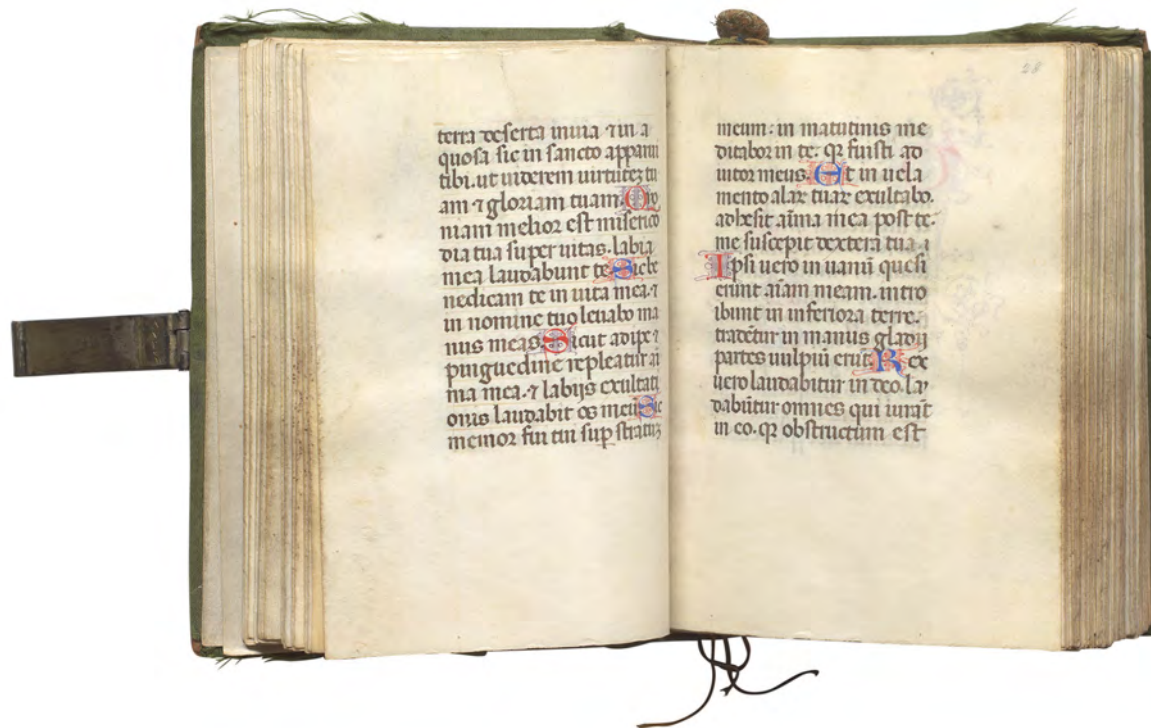 terra deserta inuia ⁊ in a
quosa sic in sancto apparui
tibi. ut uiderem uirtutez tu
am ⁊ gloriam tuam. Quo
niam melior est miserico
dia tua super uitas. labia
mea laudabunt te. Sic be
nedicam te in uita mea. ⁊
in nomine tuo leuabo ma
nus meas. Sicut adipe ⁊
pinguedine repleatur aı̄
ma mea. ⁊ labijs exultati
onis laudabit os meū. Sic
memor fui tui suꝑ stratuz
28
meum: in matutinis me
ditabor in te. qꝛ fuisti ad
iutor meus. Et in uela
mento alaꝝ tuaꝝ exultabo.
adhesit aı̄ma mea post te.
me suscepit dextera tua
Ipsi uero in uanū quesi
erunt aı̄am meam. intro
ibunt in inferiora terre.
tradētur in manus gladij
partes uulpiū erūt. Rex
uero laudabitur in deo. lau
dabūtur omnes qui iurāt
in eo. qꝛ obstructum est